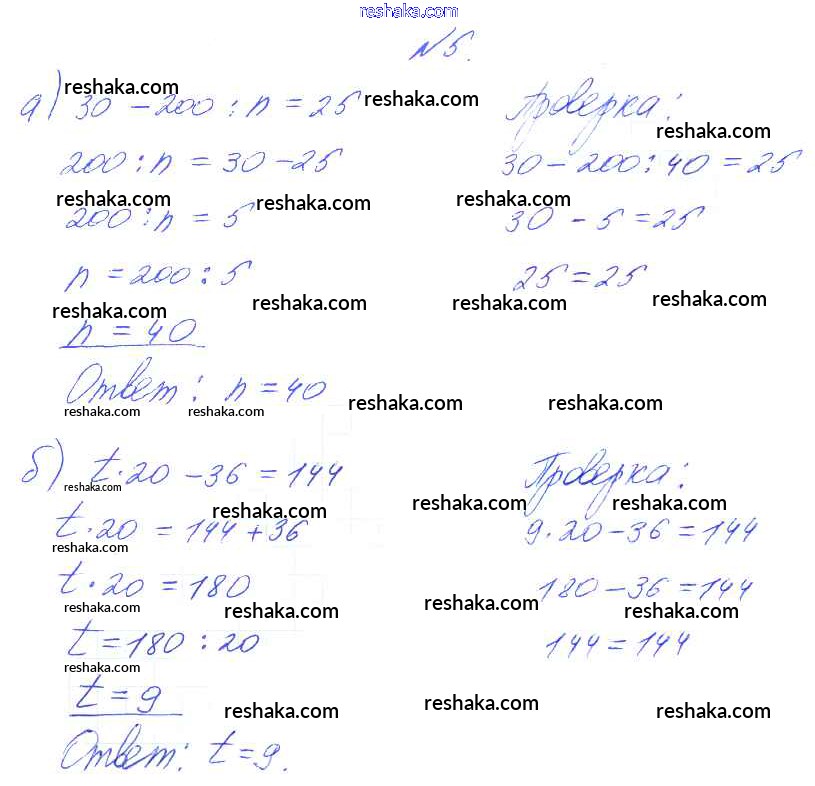 reshaka.com
№5.
reshaka.com
а) 30 - 200 : n = 25
reshaka.com
Проверка:
reshaka.com
200 : n = 30 - 25
30 - 200 : 40 = 25
reshaka.com
reshaka.com
reshaka.com
200 : n = 5
30 - 5 = 25
n = 200 : 5
25 = 25
reshaka.com
reshaka.com
reshaka.com
reshaka.com
n = 40
Ответ: n = 40
reshaka.com
reshaka.com
reshaka.com
reshaka.com
б) t · 20 - 36 = 144
Проверка:
reshaka.com
reshaka.com
reshaka.com
reshaka.com
t · 20 = 144 + 36
9 · 20 - 36 = 144
reshaka.com
t · 20 = 180
180 - 36 = 144
reshaka.com
reshaka.com
reshaka.com
reshaka.com
t = 180 : 20
144 = 144
reshaka.com
t = 9
reshaka.com
reshaka.com
reshaka.com
Ответ: t = 9.